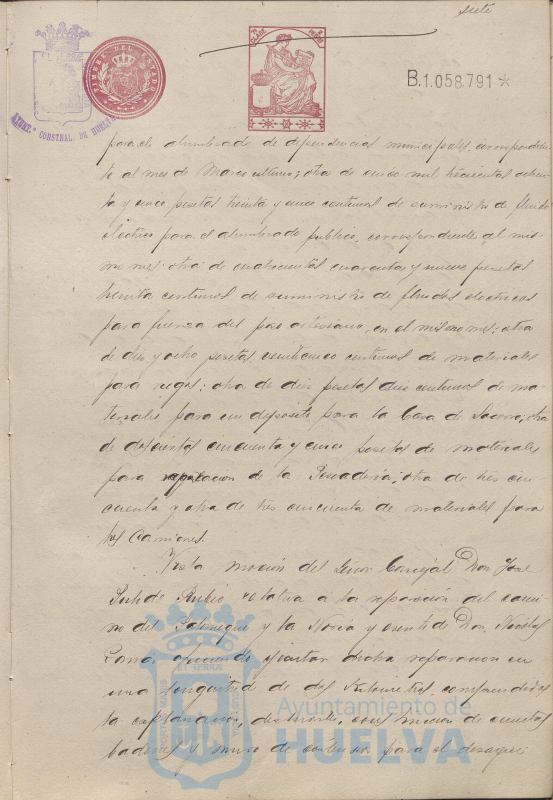 siete
TIMBRE DEL ESTADO
B.1.058.791*
para el alumbrado de dependencias municipales correspondiente
al mes de Marzo ultimo; otra de cinco mil trescientas
y cinco pesetas treinta y cinco centimos de suministro de fluido
electrico para el alumbrado publico, correspondiente al mis-
mo mes; otra de cuatrocientas cuarenta y nueve pesetas
treinta centimos de suministro de fluidos electricos
para fuerza del pozo artesiano, en el mismo mes; otra
de diez y ocho pesetas veinticinco centimos de materiales
para riegos; otra de diez pesetas diez centimos de ma-
teriales para un deposito para la Casa de Socorro; otra
de doscientas cincuenta y cinco pesetas de materiales
para reparacion de la Pescaderia; otra de tres cin-
cuenta y otra de tres cincuenta de materiales para
los Camiones.
Vista mocion del Señor Concejal Don Jose
Rubio relativa a la reparacion del cami-
no del y la Noria y de Don
ofreciendo ejecutar dicha reparacion en
una longitud de dos Kilometros, comprendidos
la explanacion, desmonte, construccion de cunetas
badenes y muro de contension para el desagüe
PORTUS MARIS
ET TERRÆ
Ayuntamiento de
HUELVA